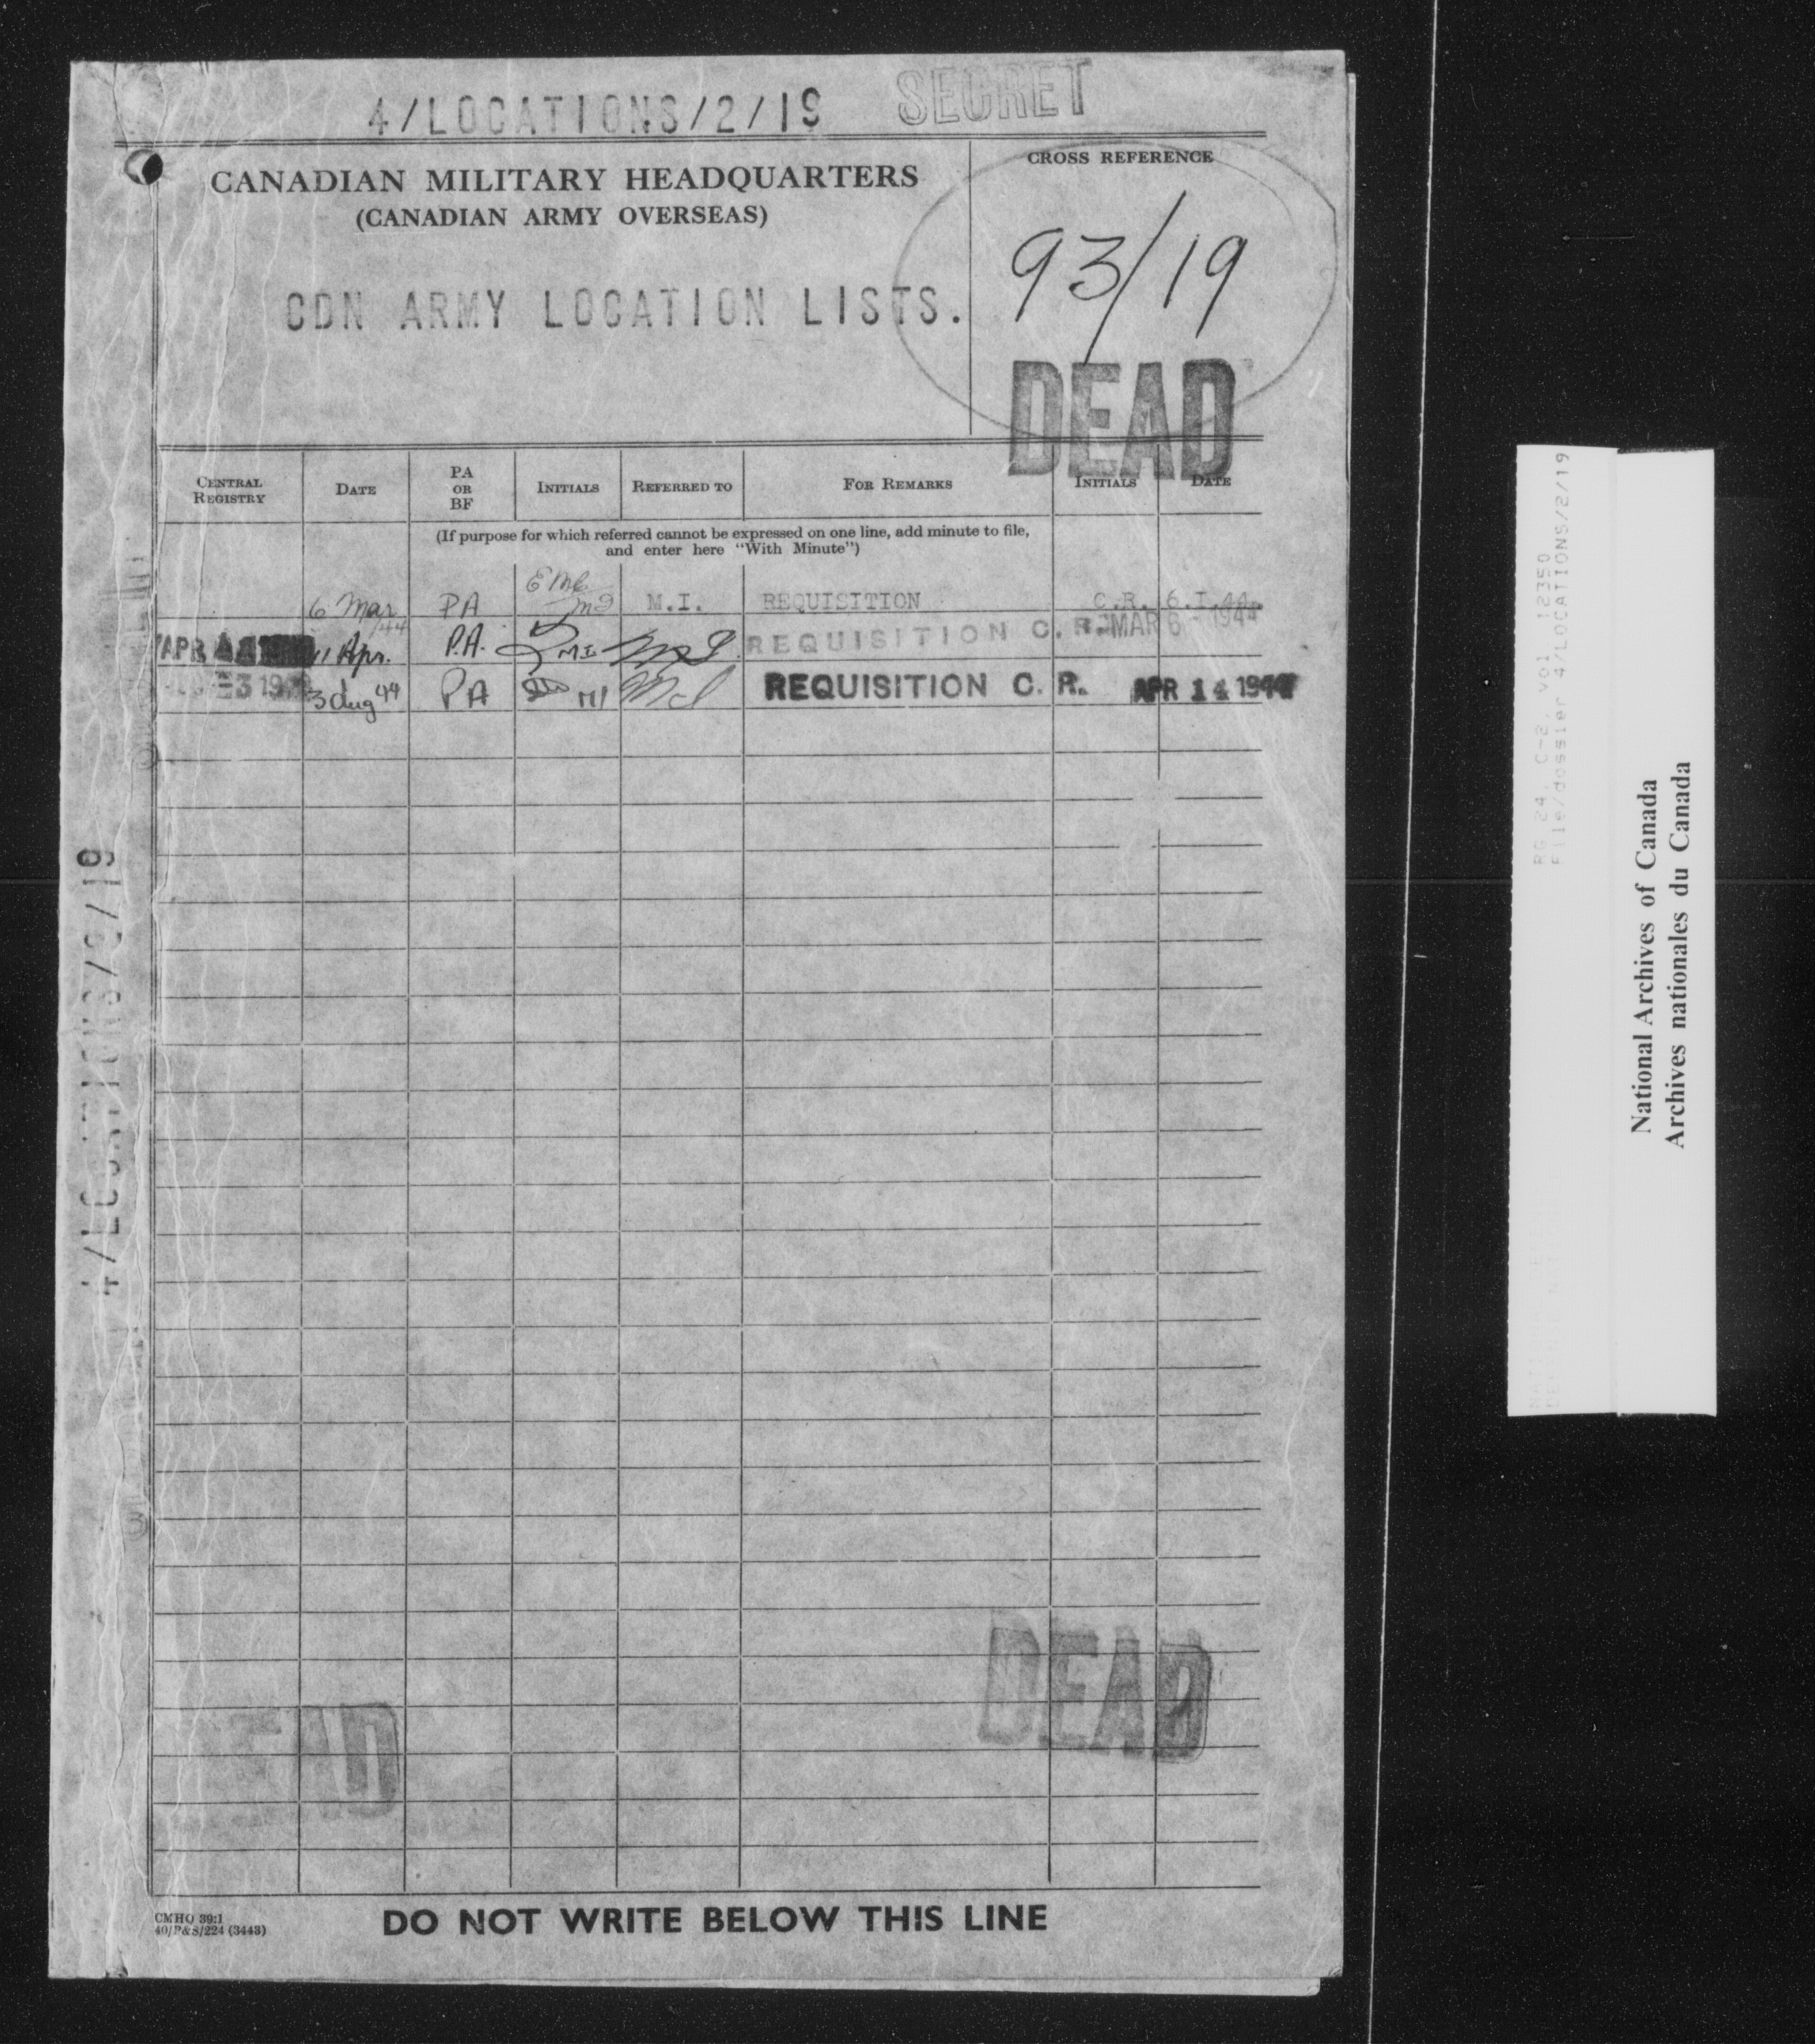 4/LOCATIONS/2/19 SECRET
CANADIAN MILITARY HEADQUARTERS
(CANADIAN ARMY OVERSEAS)
CDN ARMY LOCATION LISTS.
CROSS REFERENCE
93/19
DEAD
CENTRAL REGISTRY DATE PA OR BF INITIALS REFERRED TO FOR REMARKS INITIALS DATE
(If purpose for which referred cannot be expressed on one line, add minute to file,
and enter here "With Minute")
6 Mar/44 PA M.I. REQUISITION C.R. 6.I.44.
APR 11 Apr. P.A. MI REQUISITION C. R. MAR 6 - 1944
3 Aug 44 PA MI REQUISITION C. R. APR 14 1944
4/LOCATIONS/2/19
DEAD
DEAD
CMHQ 39:1
40/P&S/224 (3443)
DO NOT WRITE BELOW THIS LINE
RG 24, C-2, vol 12350
File/dossier 4/LOCATIONS/2/19
National Archives of Canada
Archives nationales du Canada